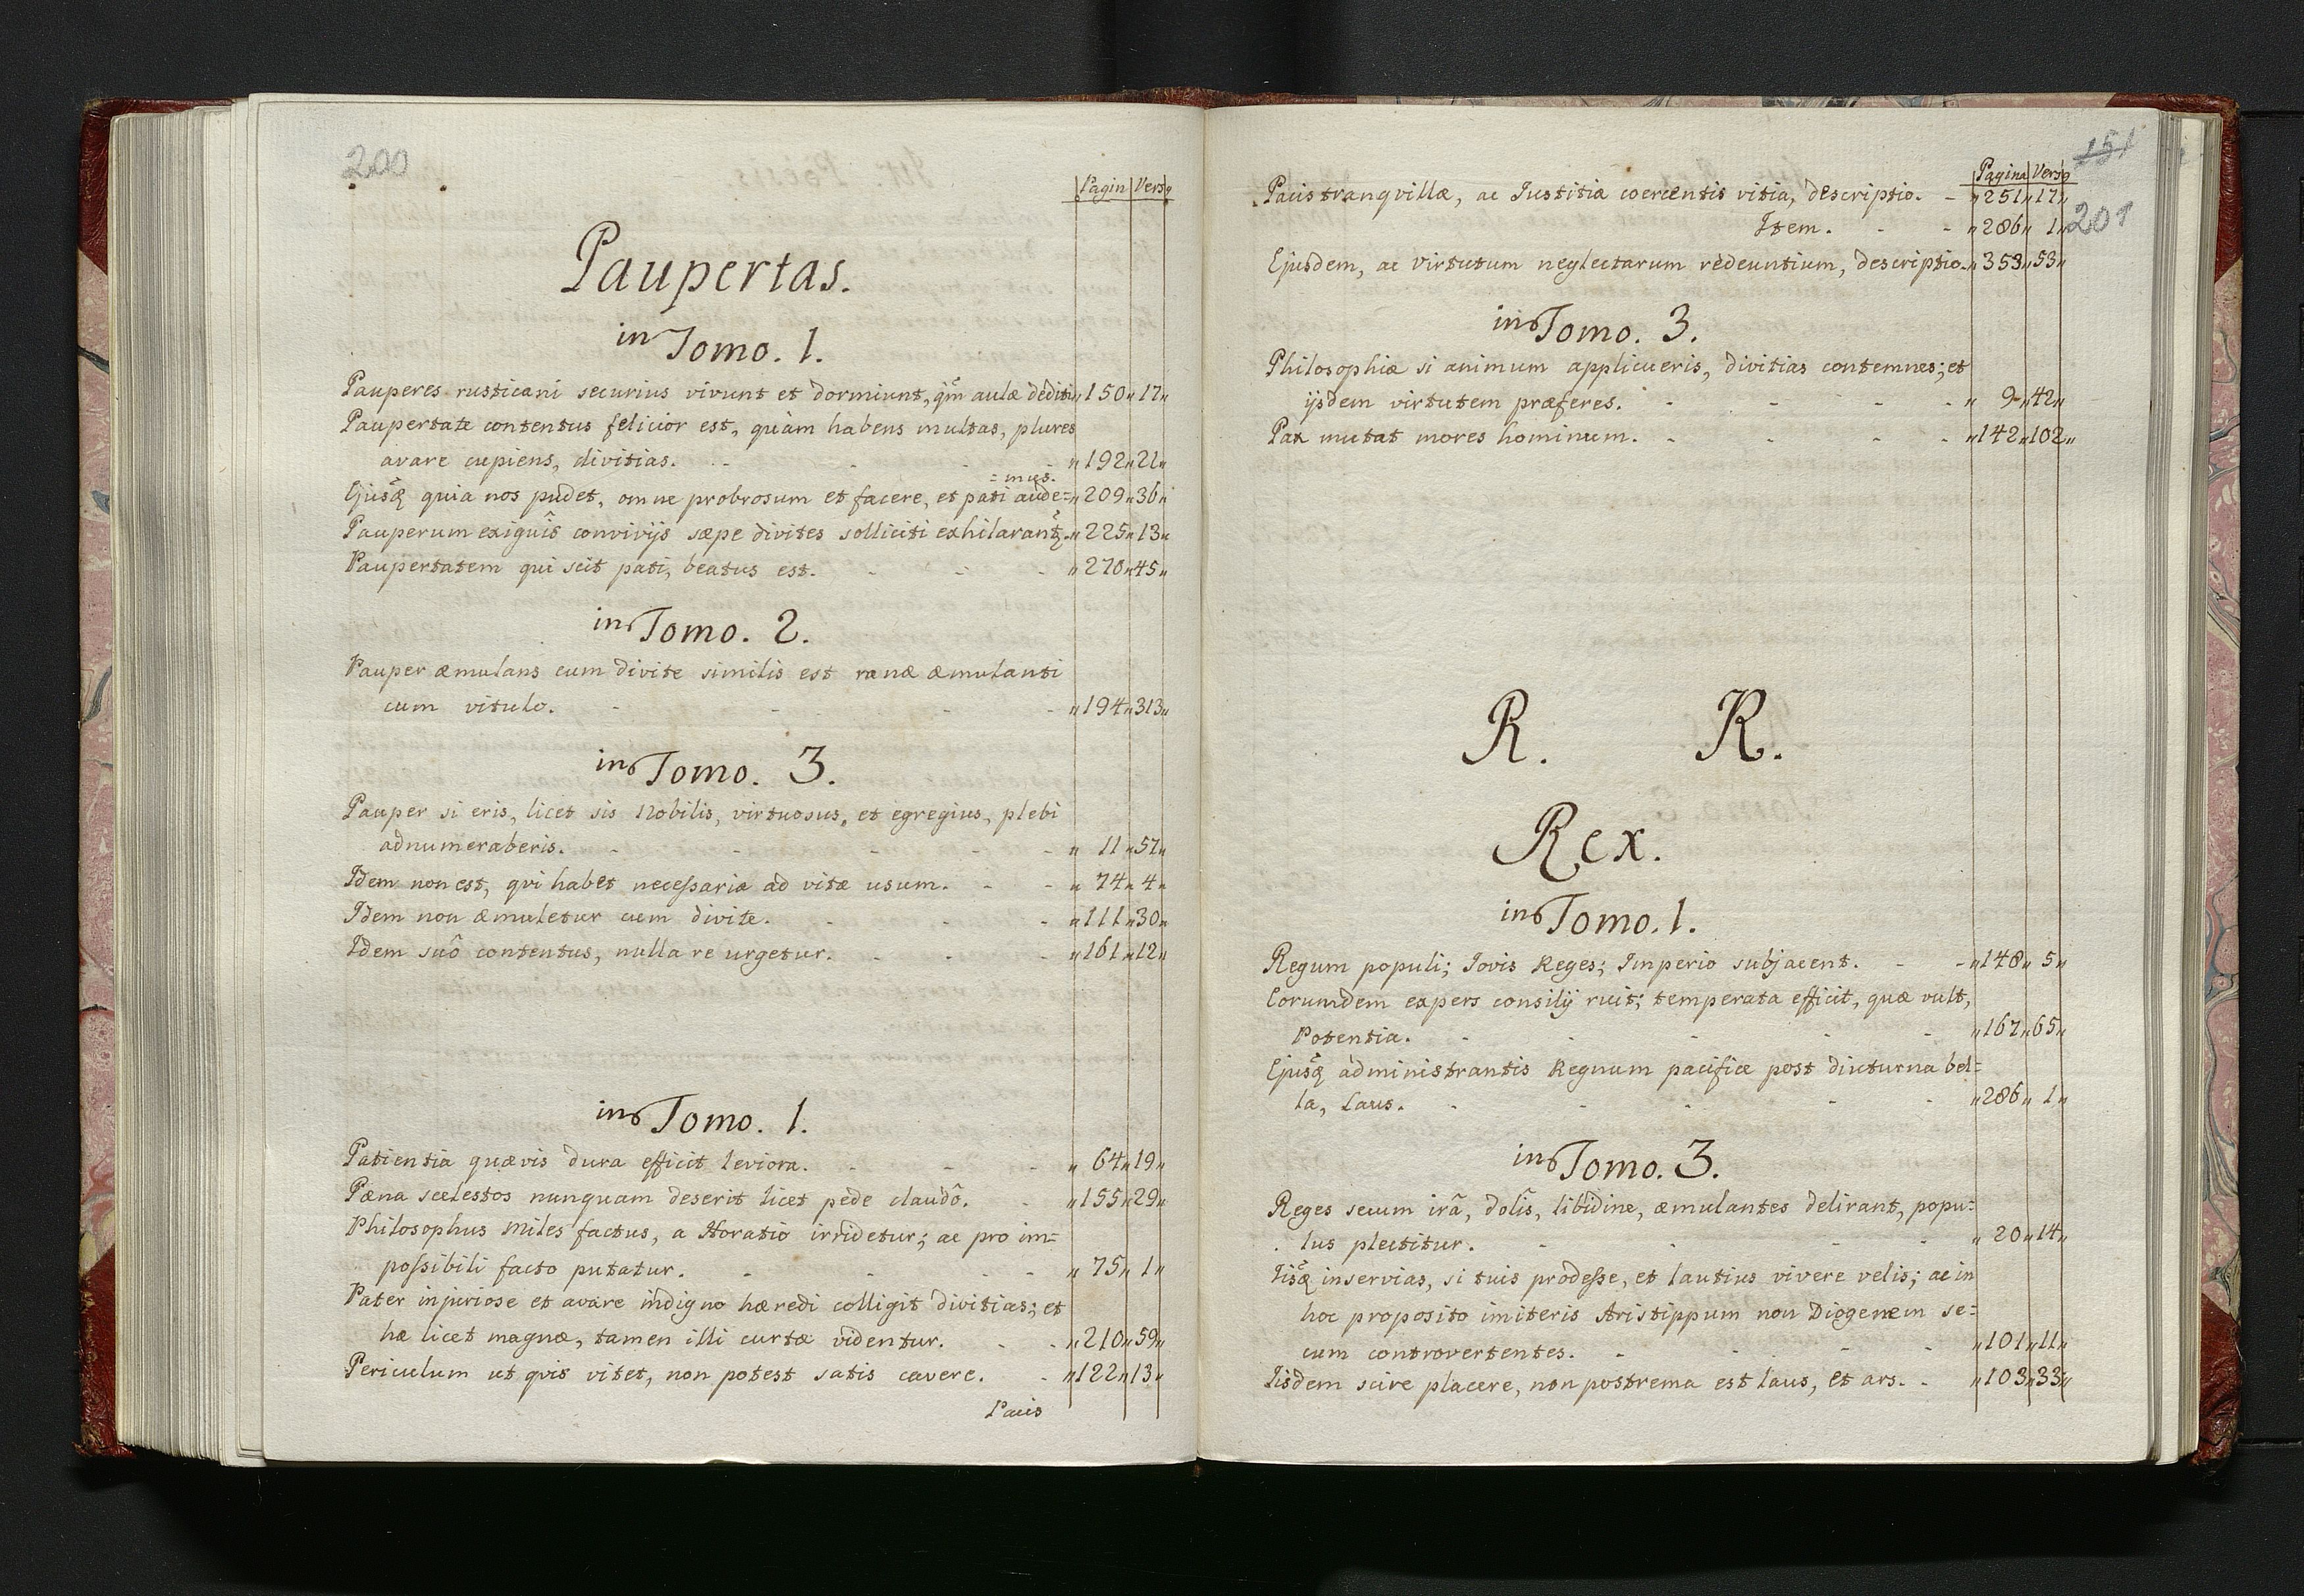 200
Pagin Versꝰ
Paupertas.
in Tomo. 1.
Pauperes rusticani securius vivunt et dormiunt, qm̃ aulæ dediti „150„17„
Paupertate contentus felicior est, quàm habens multas, plures
avare cupiens, divitias. - - - - „192„21„
= mus.
Ejusq̃ quia nos pudet, omne probrosum et facere, et pati aude= „209„36„
Pauperum exiguîs convivijs sæpe divites solliciti exhilarant᷑. „225„13„
Paupertatem qui scit pati, beatus est. - - - „270„45„
in Tomo. 2.
Pauper æmulans cum divite similis est ranæ æmulanti
cum vitulo. - - - - „194„313„
in Tomo. 3.
Pauper si eris, licet sis Nobilis, virtuosus, et egregius, plebi
adnumeraberis. - - - - - „ 11„57„
Idem non est, qvi habet necessaria ad vitæ usum. - - „ 74„ 4„
Idem non æmuletur cum divite. - - - „111„30„
Idem suô contentus, nulla re urgetur. - - - „161„12„
in Tomo. 1.
Patientia quævis dura efficit leviora. - - - „ 64„19„
Pæna scelestos nunquam deserit licet pede claudô. - „155„29„
Philosophus Miles factus, a Horatio irridetur; ac pro im=
possibili facto putatur. - - - - „ 75„ 1„
Pater injuriose et avare indigno hæredi colligit divitias; et
hæ licet magnæ, tamen illi curtæ videntur. - - „210„59„
Periculum ut qvis vitet, non potest satis cavere. - „122„13„
Pacis
151
Pagina Versꝰ
Pacis tranqvillæ, ac Iustitia coercentis vitia, descriptio. - „251„17„
201
Item. - - „286„ 1„
Ejusdem, ac virtutum neglectarum redeuntium, descriptio. „353„53„
in Tomo. 3.
Philosophiæ si animum applicueris, divitias contemnes; et
ijsdem virtutem præferes. - - - - „ 9„42„
Pax mutat mores hominum. - - - - „142„102„
R. R.
Rex.
in Tomo. 1.
Regum populi; Iovis Reges; Imperio subjacent. - - „148„ 5„
Eorumdem expers consilij ruit; temperata efficit, quæ vult,
Potentia. - - - - - „167„65„
Ejusq̃ administrantis Regnum pacifice post diuturna bel=
la, Laus. - - - - - „286„ 1„
in Tomo. 3.
Reges secum irâ, dolîs, libidine, æmulantes delirant, popu=
lus plectitur. - - - - „ 20„14„
Iisq̃ inservias, si tuis prodesse, et lautius vivere velis; ac in
hoc proposito imiteris Aristippum non Diogenem se=
cum controvertentes. - - - - „101„11„
Iisdem scire placere, non postrema est laus, et ars. - „103„33„